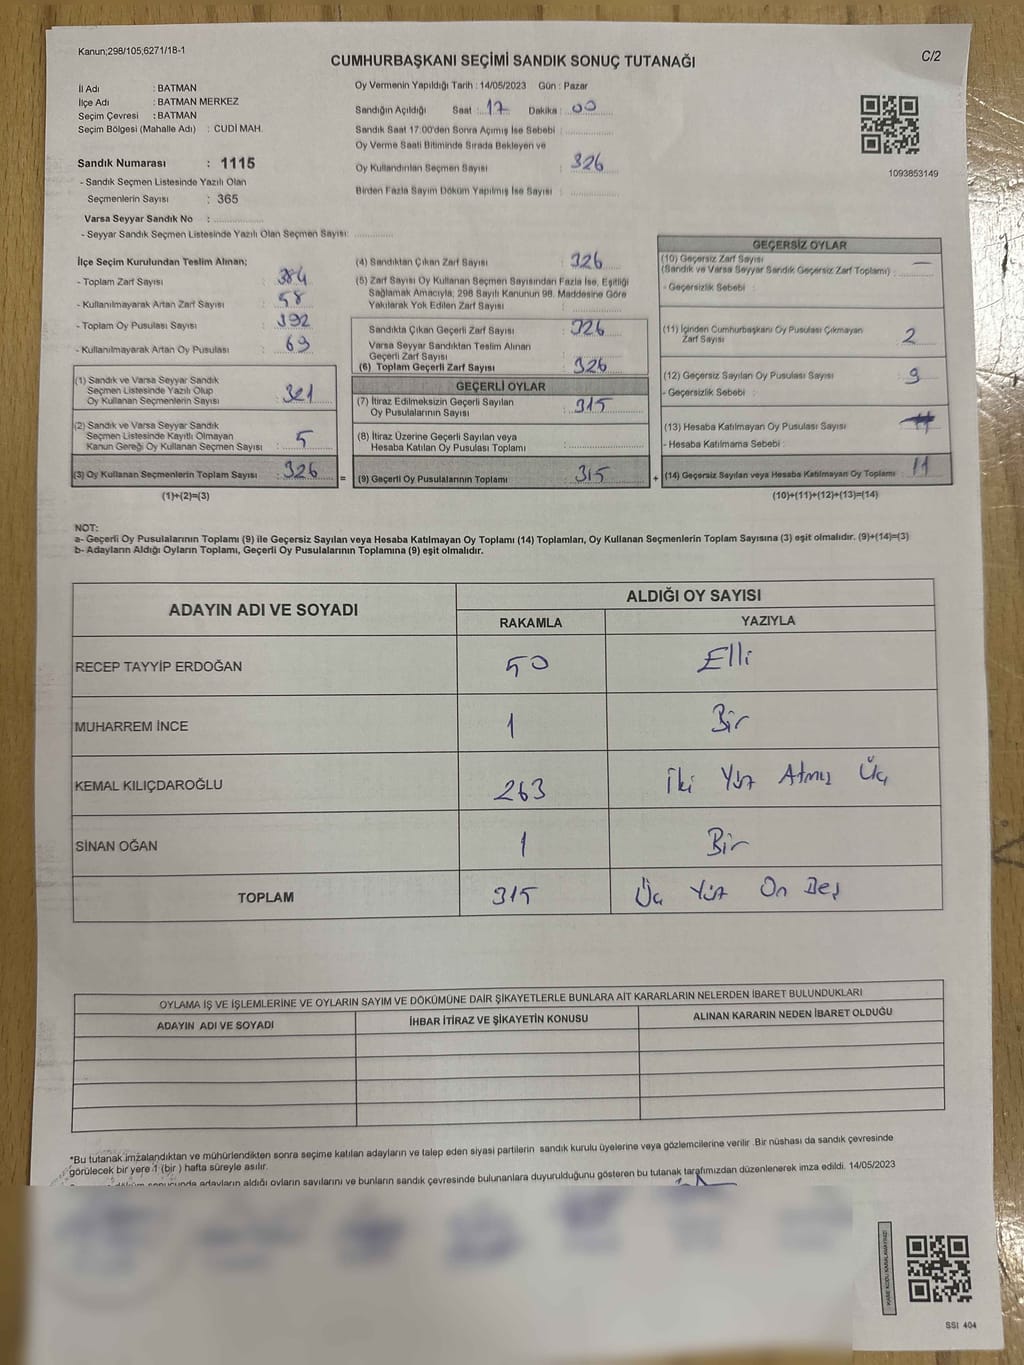 Kanun;298/105,6271/18-1
CUMHURBAŞKANI SEÇİMİ SANDIK SONUÇ TUTANAĞI
C/2
İl Adı : BATMAN
İlçe Adı : BATMAN MERKEZ
Seçim Çevresi : BATMAN
Seçim Bölgesi (Mahalle Adı) : CUDİ MAH.
Sandık Numarası : 1115
- Sandık Seçmen Listesinde Yazılı Olan
Seçmenlerin Sayısı : 365
Varsa Seyyar Sandık No : ..............
- Seyyar Sandık Seçmen Listesinde Yazılı Olan Seçmen Sayısı: ............
Oy Vermenin Yapıldığı Tarih : 14/05/2023 Gün : Pazar
Sandığın Açıldığı Saat : 17 Dakika : 00
Sandık Saat 17:00'den Sonra Açımış İse Sebebi : ..............
Oy Verme Saati Bitiminde Sırada Bekleyen ve
Oy Kullandırılan Seçmen Sayısı : 326
Birden Fazla Sayım Döküm Yapılmış İse Sayısı : ..............
1093853149
İlçe Seçim Kurulundan Teslim Alınan;
- Toplam Zarf Sayısı : 384
- Kullanılmayarak Artan Zarf Sayısı : 58
- Toplam Oy Pusulası Sayısı : 392
- Kullanılmayarak Artan Oy Pusulası : 69
(1) Sandık ve Varsa Seyyar Sandık
Seçmen Listesinde Yazılı Olup
Oy Kullanan Seçmenlerin Sayısı : 321
(2) Sandık ve Varsa Seyyar Sandık
Seçmen Listesinde Kayıtlı Olmayan
Kanun Gereği Oy Kullanan Seçmen Sayısı : 5
(3) Oy Kullanan Seçmenlerin Toplam Sayısı : 326
(1)+(2)=(3)
(4) Sandıktan Çıkan Zarf Sayısı : 326
(5) Zarf Sayısı Oy Kullanan Seçmen Sayısından Fazla İse, Eşitliği
Sağlamak Amacıyla; 298 Sayılı Kanunun 98. Maddesine Göre
Yakılarak Yok Edilen Zarf Sayısı : ..............
Sandıkta Çıkan Geçerli Zarf Sayısı : 326
Varsa Seyyar Sandıktan Teslim Alınan
Geçerli Zarf Sayısı : ..............
(6) Toplam Geçerli Zarf Sayısı : 326
GEÇERLİ OYLAR
(7) İtiraz Edilmeksizin Geçerli Sayılan
Oy Pusulalarının Sayısı : 315
(8) İtiraz Üzerine Geçerli Sayılan veya
Hesaba Katılan Oy Pusulası Toplamı : ..............
= (9) Geçerli Oy Pusulalarının Toplamı : 315
GEÇERSİZ OYLAR
(10) Geçersiz Zarf Sayısı
(Sandık ve Varsa Seyyar Sandık Geçersiz Zarf Toplamı) : —
- Geçersizlik Sebebi :
(11) İçinden Cumhurbaşkanı Oy Pusulası Çıkmayan
Zarf Sayısı : 2
(12) Geçersiz Sayılan Oy Pusulası Sayısı : 9
- Geçersizlik Sebebi :
(13) Hesaba Katılmayan Oy Pusulası Sayısı :
- Hesaba Katılmama Sebebi :
+ (14) Geçersiz Sayılan veya Hesaba Katılmayan Oy Toplamı : 11
(10)+(11)+(12)+(13)=(14)
NOT:
a- Geçerli Oy Pusulalarının Toplamı (9) ile Geçersiz Sayılan veya Hesaba Katılmayan Oy Toplamı (14) Toplamları, Oy Kullanan Seçmenlerin Toplam Sayısına (3) eşit olmalıdır. (9)+(14)=(3)
b- Adayların Aldığı Oyların Toplamı, Geçerli Oy Pusulalarının Toplamına (9) eşit olmalıdır.
ADAYIN ADI VE SOYADI
ALDIĞI OY SAYISI
RAKAMLA YAZIYLA
RECEP TAYYİP ERDOĞAN 50 Elli
MUHARREM İNCE 1 Bir
KEMAL KILIÇDAROĞLU 263 İki Yüz Atmış Üç
SİNAN OĞAN 1 Bir
TOPLAM 315 Üç Yüz On Beş
OYLAMA İŞ VE İŞLEMLERİNE VE OYLARIN SAYIM VE DÖKÜMÜNE DAİR ŞİKAYETLERLE BUNLARA AİT KARARLARIN NELERDEN İBARET BULUNDUKLARI
ADAYIN ADI VE SOYADI İHBAR İTİRAZ VE ŞİKAYETİN KONUSU ALINAN KARARIN NEDEN İBARET OLDUĞU
*Bu tutanak imzalandıktan ve mühürlendikten sonra seçime katılan adayların ve talep eden siyasi partilerin sandık kurulu üyelerine veya gözlemcilerine verilir .Bir nüshası da sandık çevresinde
görülecek bir yere 1 (bir ) hafta süreyle asılır.
döküm sonucunda adayların aldığı oyların sayılarını ve bunların sandık çevresinde bulunanlara duyurulduğunu gösteren bu tutanak tarafımızdan düzenlenerek imza edildi. 14/05/2023
SSI 404